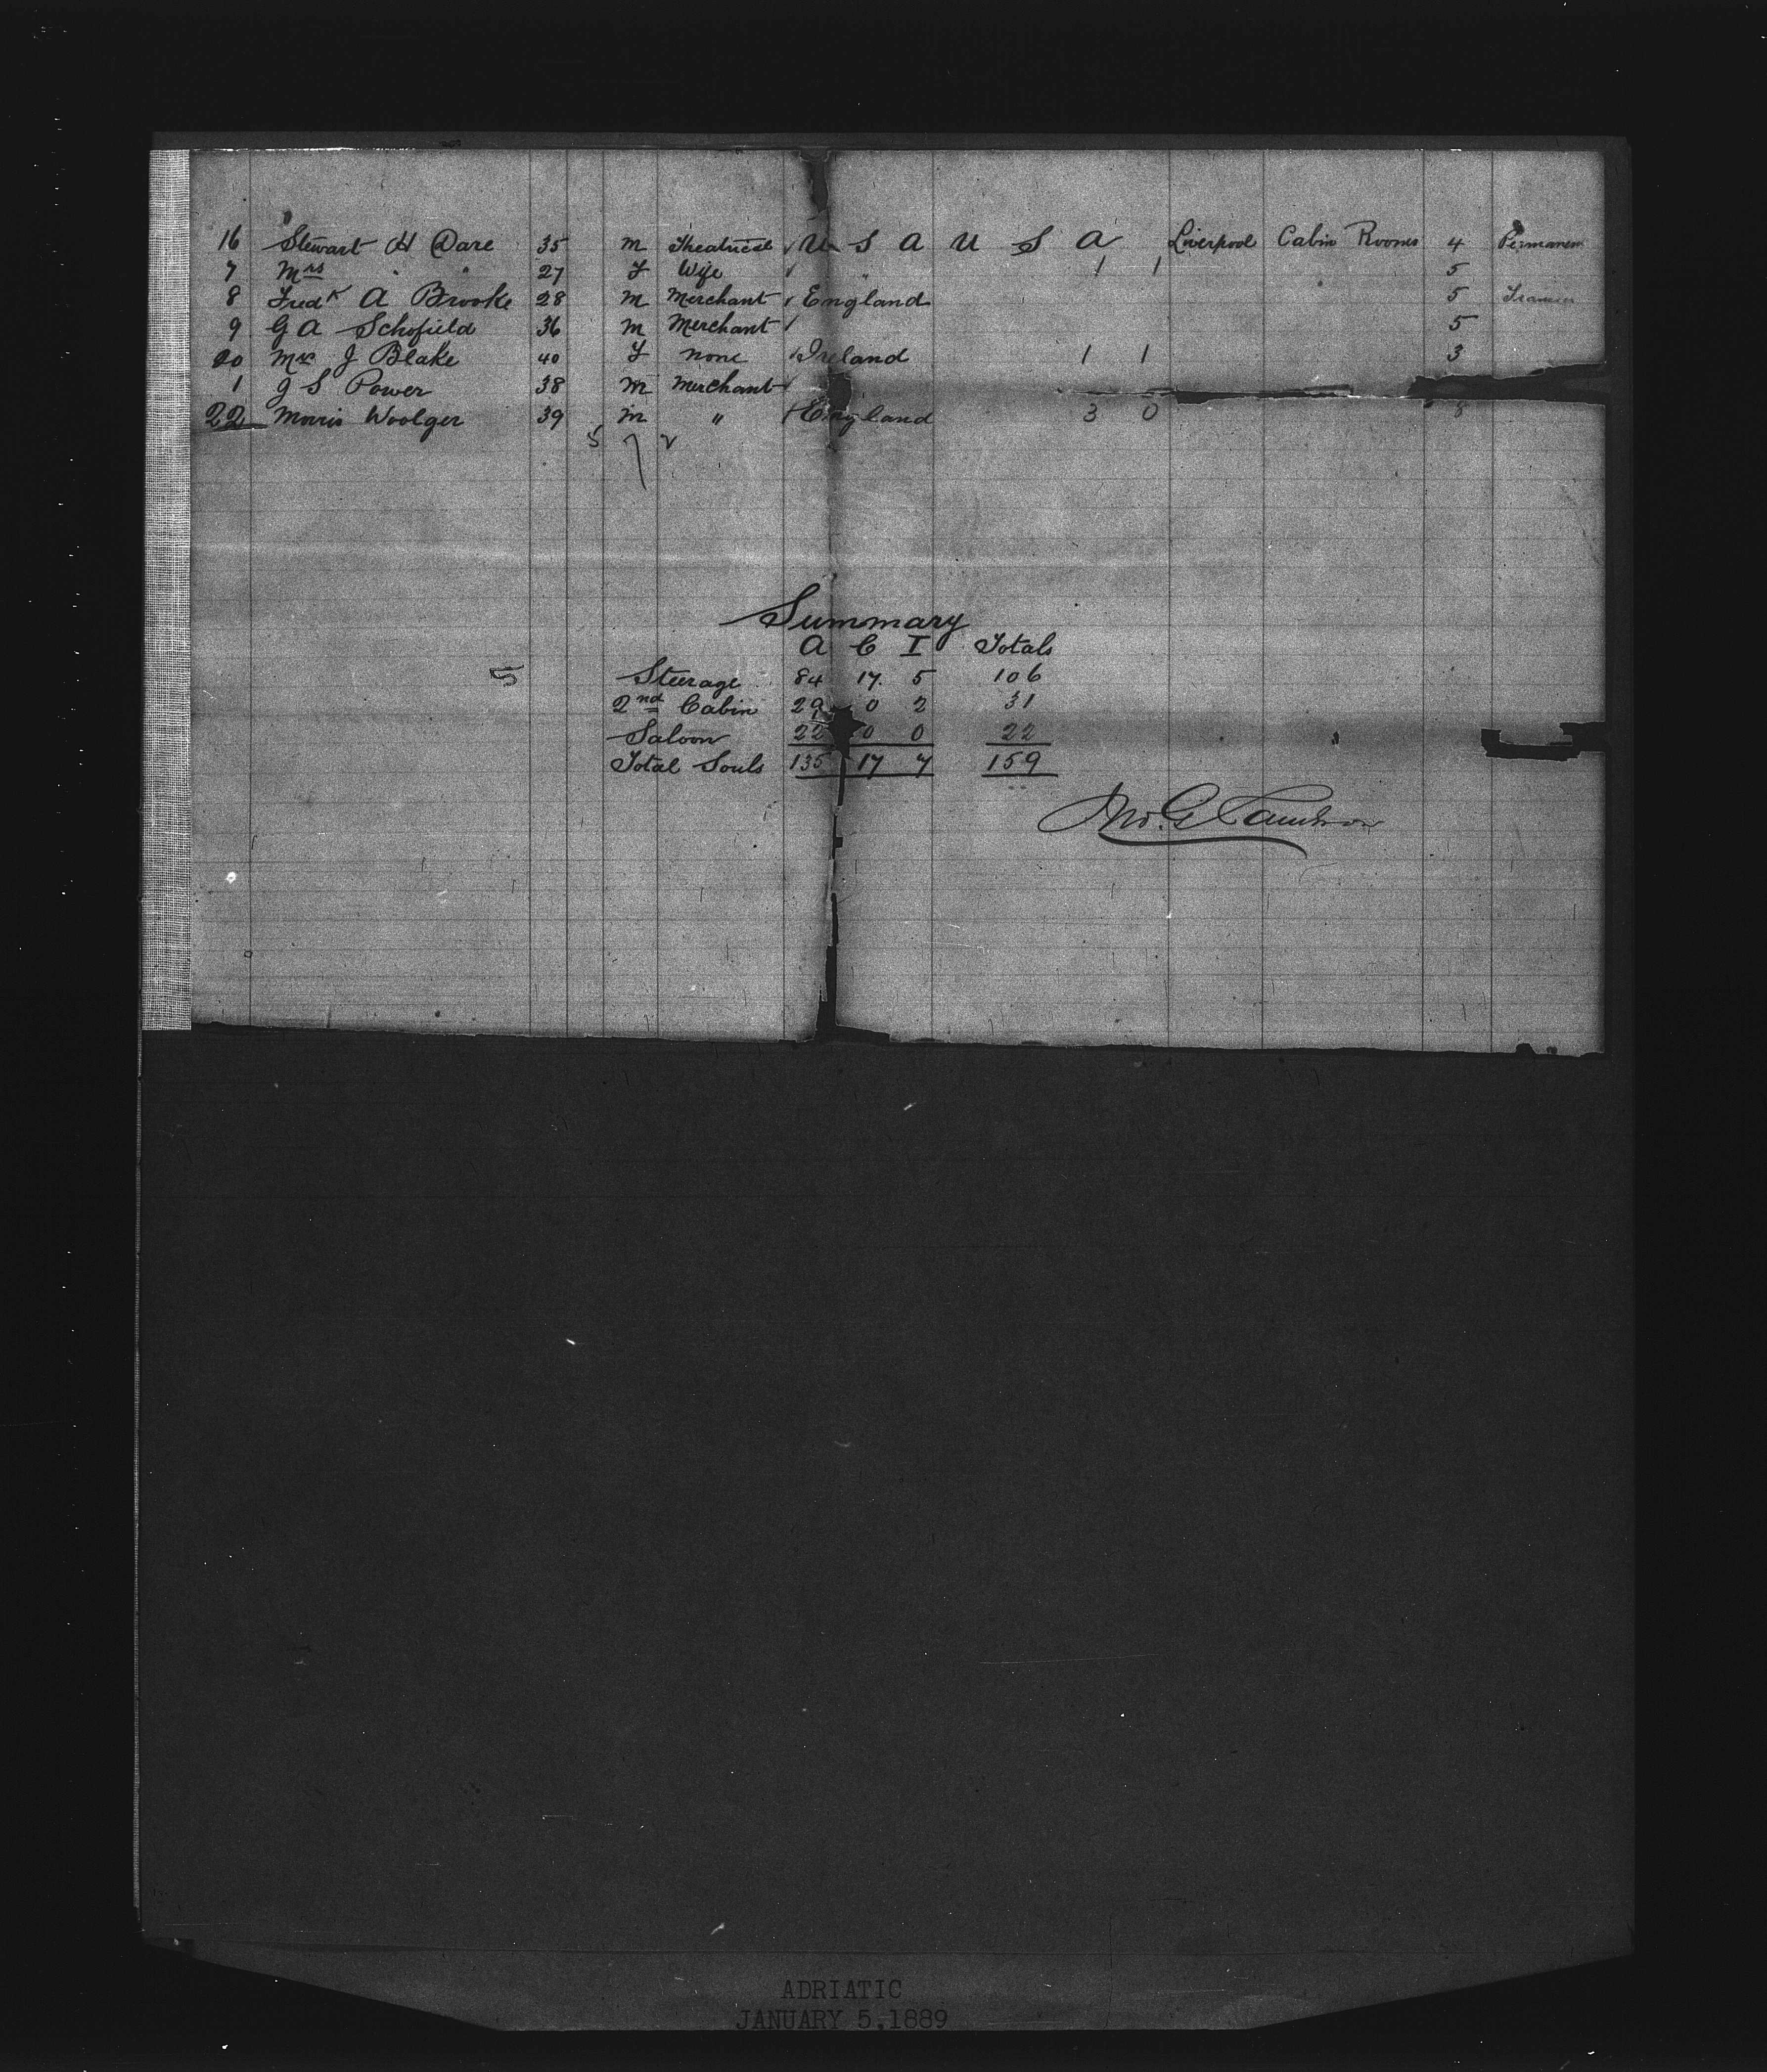 16 Stewart H Dare 35 m Theatrical √ U S A U S A Liverpool Cabin Rooms 4 Permanent
7 Mrs " " 27 F Wife √ " 1 1 5
8 Fredk A Brooke 28 m Merchant √ England 5
9 G A Schofield 36 m Merchant √ 5
20 Mrs J Blake 40 F none √ Ireland 1 1 3
1 J S Power 38 m Merchant √
22 Morris Woolger 39 m " √ England 3 0 8
5 7 2
Summary
A C I Totals
Steerage 84 17. 5 106
5
2nd Cabin 29 0 2 31
Saloon 22 0 0 22
Total Souls 135 17 7 159
Jno. G
ADRIATIC
JANUARY 5, 1889